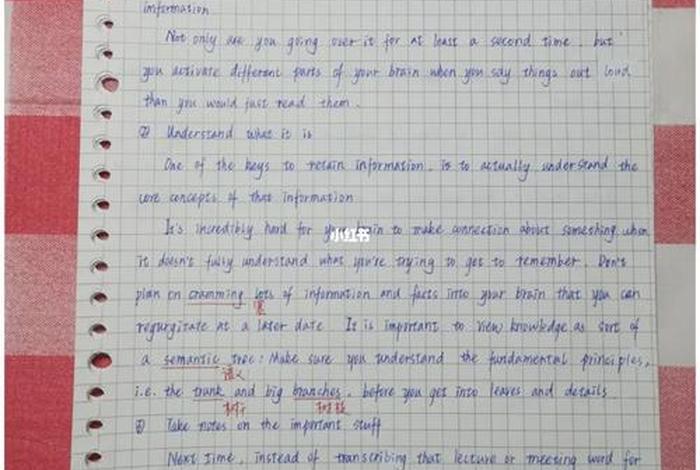 information
Not only are you going over it for at least a second time, but
you activate different parts of your brain when you say things out loud
than you would just read them.
② Understand what it is
One of the keys to retain information, is to actually understand the
core concepts of that information
It's incredibly hard for your brain to make connection about something when
小红书
it doesn't fully understand what you're trying to get to remember. Don't
plan on cramming lots of information and facts into your brain that you can
塞
regurgitate at a later date It is important to view knowledge as sort of
a semantic tree: Make sure you understand the fundamental principles,
语义
i.e. the trunk and big branches, before you get into leaves and details
树干 树枝
Take notes on the important stuff
Next time, instead of transcribing that lecture or meeting word for